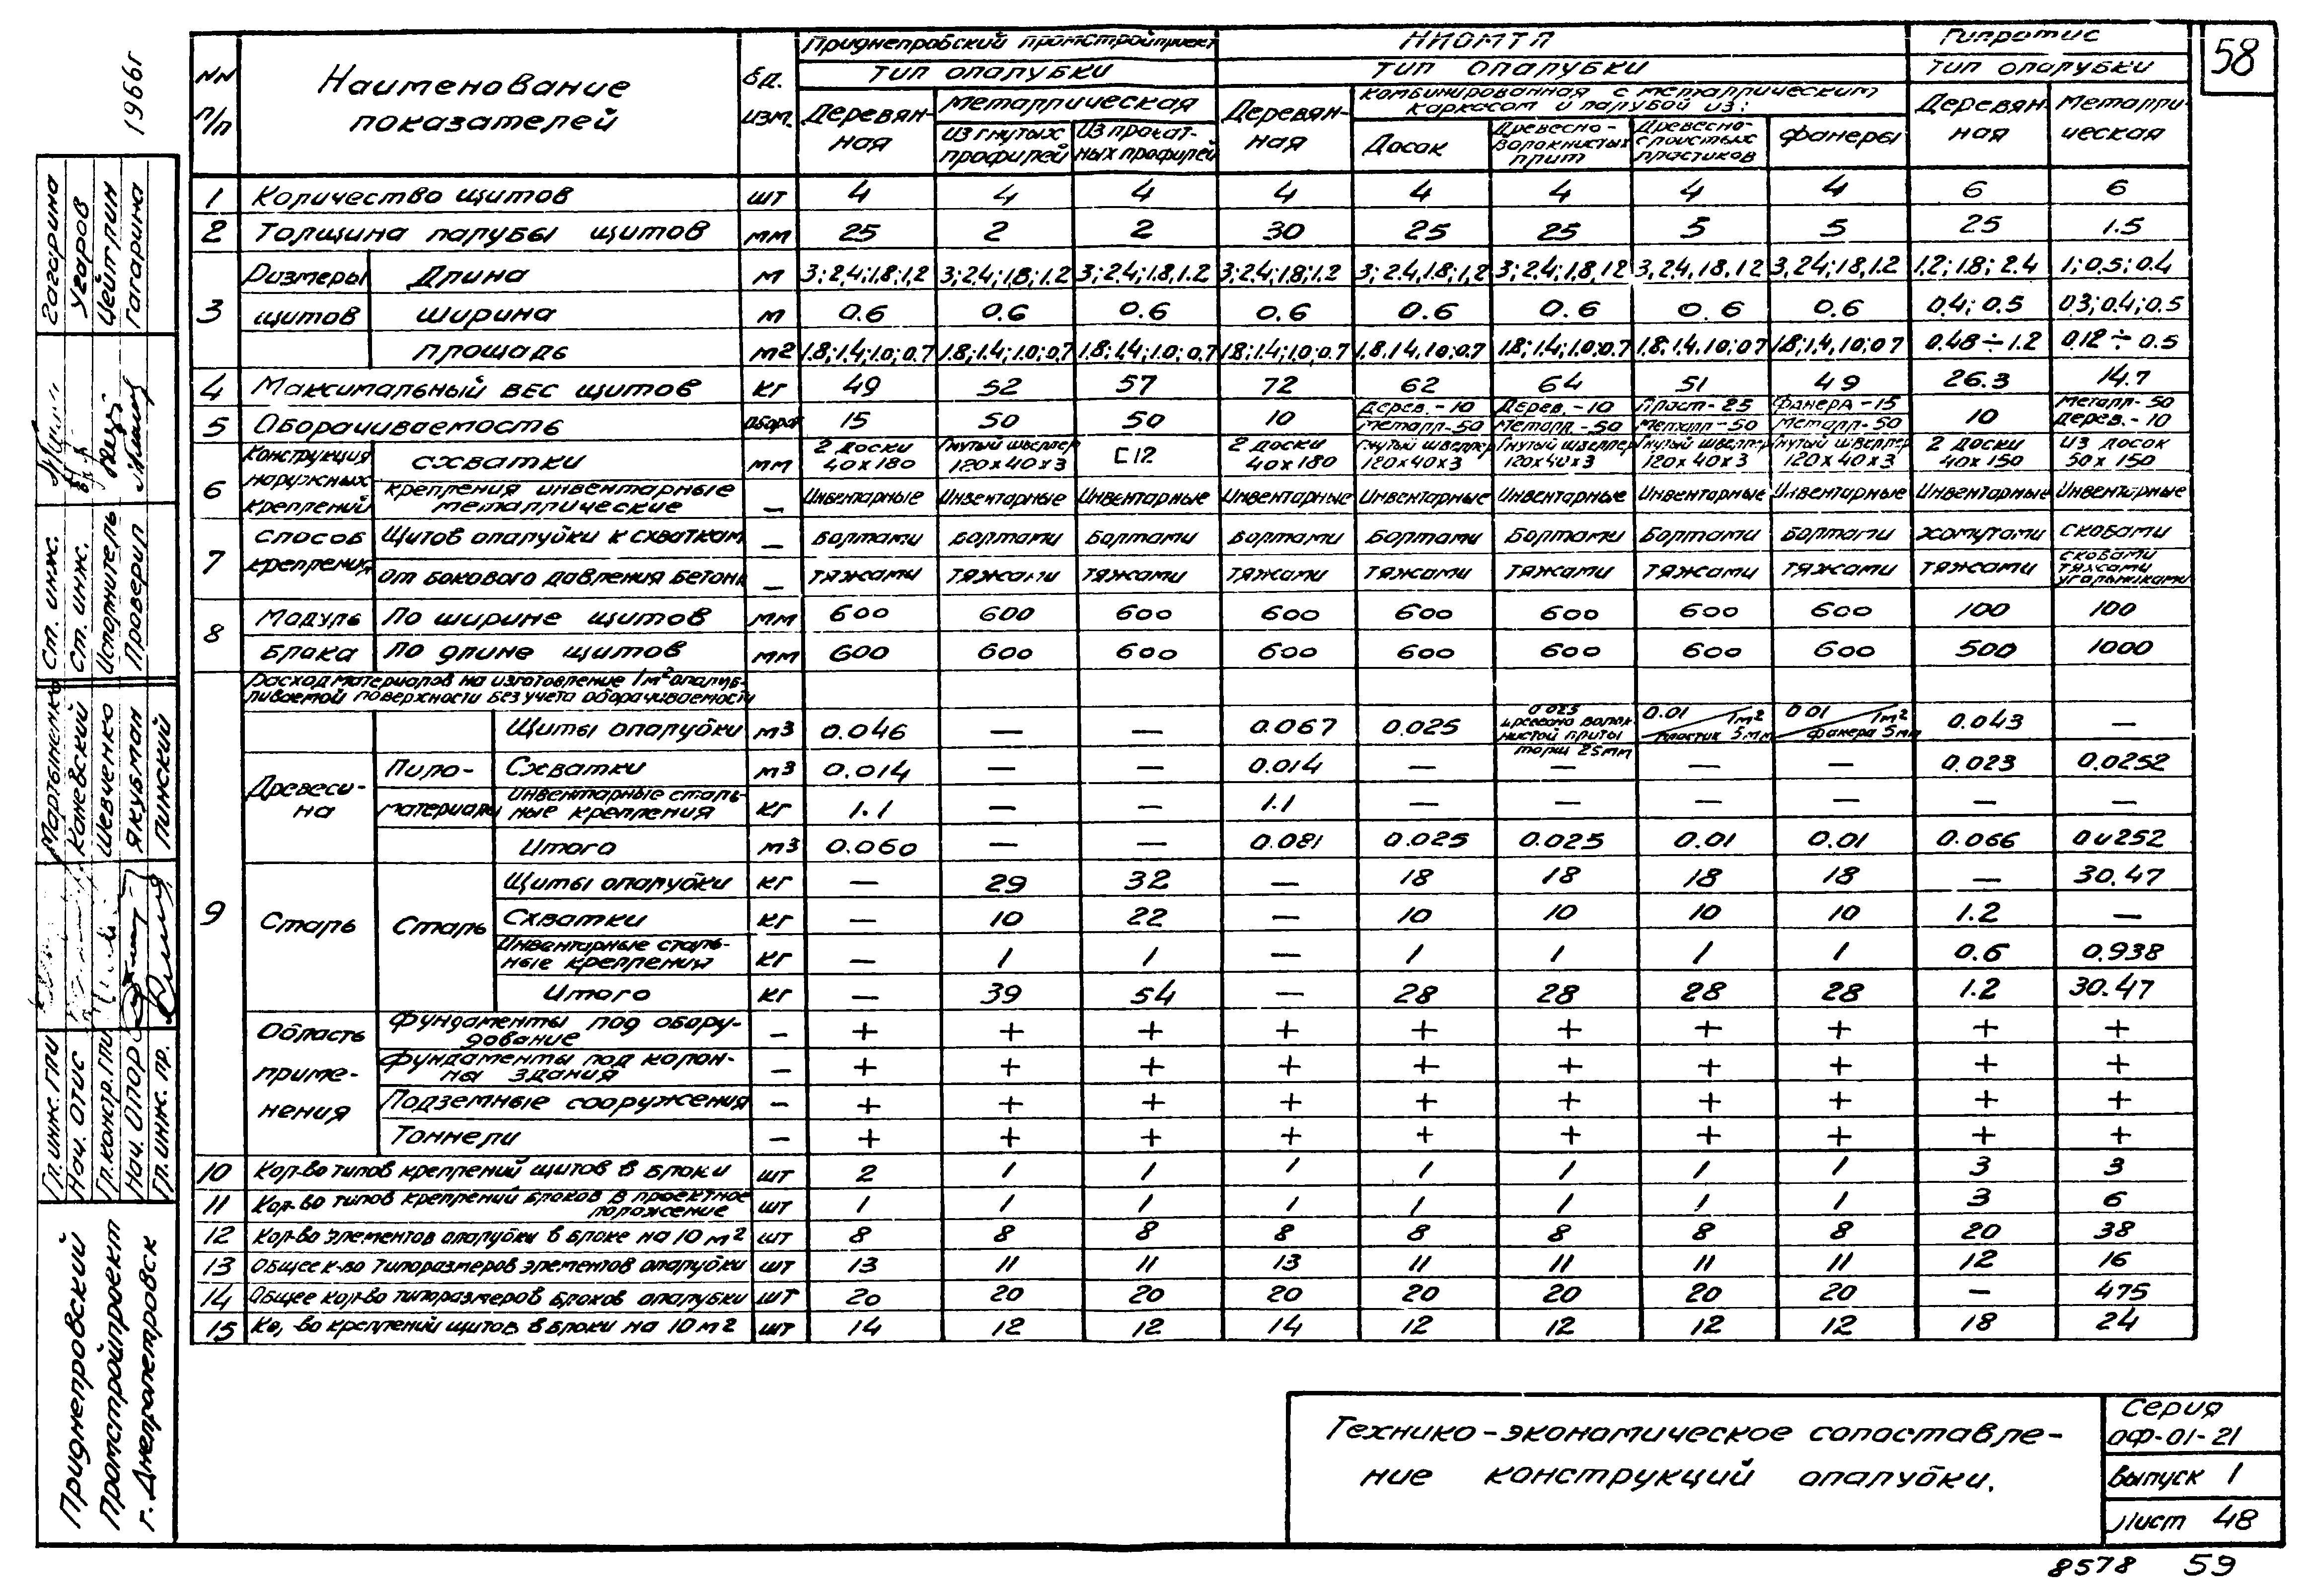 58
NN п/п Наименование показателей Ед. изм. Приднепровский промстройпроект НИОМТП Гипротис
тип опалубки тип опалубки тип опалубки
Деревянная Металлическая Деревянная Комбинированная с металлическим каркасом и палубой из: Деревянная Металлическая
из гнутых профилей из прокатных профилей Досок Древесно-волокнистых плит Древесно-слоистых пластиков Фанеры
1 Количество щитов шт 4 4 4 4 4 4 4 4 6 6
2 Толщина палубы щитов мм 25 2 2 30 25 25 5 5 25 1.5
3 Размеры щитов Длина м 3;2.4;1.8;1.2 3;2.4;1.8;1.2 3;2.4;1.8;1.2 3;2.4;1.8;1.2 3;2.4,1.8;1,2 3;2.4;1.8,1.2 3,2.4,1.8,1.2 3,2.4;1.8,1.2 1.2;1.8;2.4 1;0.5;0.4
Ширина м 0.6 0.6 0.6 0.6 0.6 0.6 0.6 0.6 0.4;0.5 0.3;0.4;0.5
площадь м2 1.8;1.4;1.0;0.7 1.8;1.4;1.0;0.7 1.8;1.4;1.0;0.7 1.8;1.4;1.0;0.7 1.8,1.4,1.0;0.7 1.8;1.4;1.0;0.7 1.8;1.4,1.0;0.7 1.8;1.4,1.0;0.7 0.48÷1.2 0.12÷0.5
4 Максимальный вес щитов кг 49 52 57 72 62 64 51 49 26.3 14.7
5 Оборачиваемость оборот 15 50 50 10 Дерев.-10 Металл-50 Дерев.-10 Металл-50 Пласт-25 Металл-50 Фанера-15 Металл-50 10 Металл-50 Дерев.-10
6 Конструкция наружных креплений схватки мм 2 доски 40x180 Гнутый швеллер 120x40x3 С12 2 доски 40x180 Гнутый швеллер 120x40x3 Гнутый швеллер 120x40x3 Гнутый швеллер 120x40x3 Гнутый швеллер 120x40x3 2 доски 40x150 из досок 50x150
крепления инвентарные металлические — Инвентарные Инвентарные Инвентарные Инвентарные Инвентарные Инвентарные Инвентарные Инвентарные Инвентарные Инвентарные
7 Способ крепления Щитов опалубки к схваткам — Болтами Болтами Болтами Болтами Болтами Болтами Болтами Болтами хомутами скобами
от бокового давления бетона — тяжами тяжами тяжами тяжами тяжами тяжами тяжами тяжами тяжами скобами тяжами угольниками
8 Модуль блока По ширине щитов мм 600 600 600 600 600 600 600 600 100 100
По длине щитов мм 600 600 600 600 600 600 600 600 500 1000
9 Расход материалов на изготовление 1м2 опалубливаемой поверхности без учета оборачиваемости
Древесина Пиломатериалы Щиты опалубки м3 0.046 — — 0.067 0.025 0.025 древесно волокнистой плиты толщ 25мм 0.01 1м2 пластик 5мм 0.01 1м2 фанера 5мм 0.043 —
Схватки м3 0.014 — — 0.014 — — — — 0.023 0.0252
Инвентарные стальные крепления кг 1.1 — — 1.1 — — — — — —
Итого м3 0.060 — — 0.081 0.025 0.025 0.01 0.01 0.066 0.0252
Сталь Сталь Щиты опалубки кг — 29 32 — 18 18 18 18 — 30.47
Схватки кг — 10 22 — 10 10 10 10 1.2 —
Инвентарные стальные крепления кг — 1 1 — 1 1 1 1 0.6 0.938
Итого кг — 39 54 — 28 28 28 28 1.2 30.47
Область применения Фундаменты под оборудование — + + + + + + + + + +
Фундаменты под колонны здания — + + + + + + + + + +
Подземные сооружения — + + + + + + + + + +
Тоннели — + + + + + + + + + +
10 Кол-во типов креплений щитов в блоки шт 2 1 1 1 1 1 1 1 3 3
11 Кол-во типов креплений блоков в проектное положение шт 1 1 1 1 1 1 1 1 3 6
12 Кол-во элементов опалубки в блоке на 10 м2 шт 8 8 8 8 8 8 8 8 20 38
13 Общее к-во типоразмеров элементов опалубки шт 13 11 11 13 11 11 11 11 12 16
14 Общее кол-во типоразмеров блоков опалубки шт 20 20 20 20 20 20 20 20 — 475
15 Ко,-во креплений щитов в блоки на 10 м2 шт 14 12 12 14 12 12 12 12 18 24
Технико-экономическое сопоставле-
ние конструкций опалубки.
Серия
ОФ-01-21
Выпуск 1
Лист 48
8578 59
1966г
Ст. инж. Гагарина
Ст. инж. Угаров
Исполнитель Цейтлин
Проверил Гагарина
Гл. инж. ГПИ Мартыненко
Нач. ОТИС Каневский
Гл. констр. ГПИ Шевченко
Нач. ОПОР Якубман
Гл. инж. пр. Пинский
Приднепровский
Промстройпроект
г. Днепропетровск